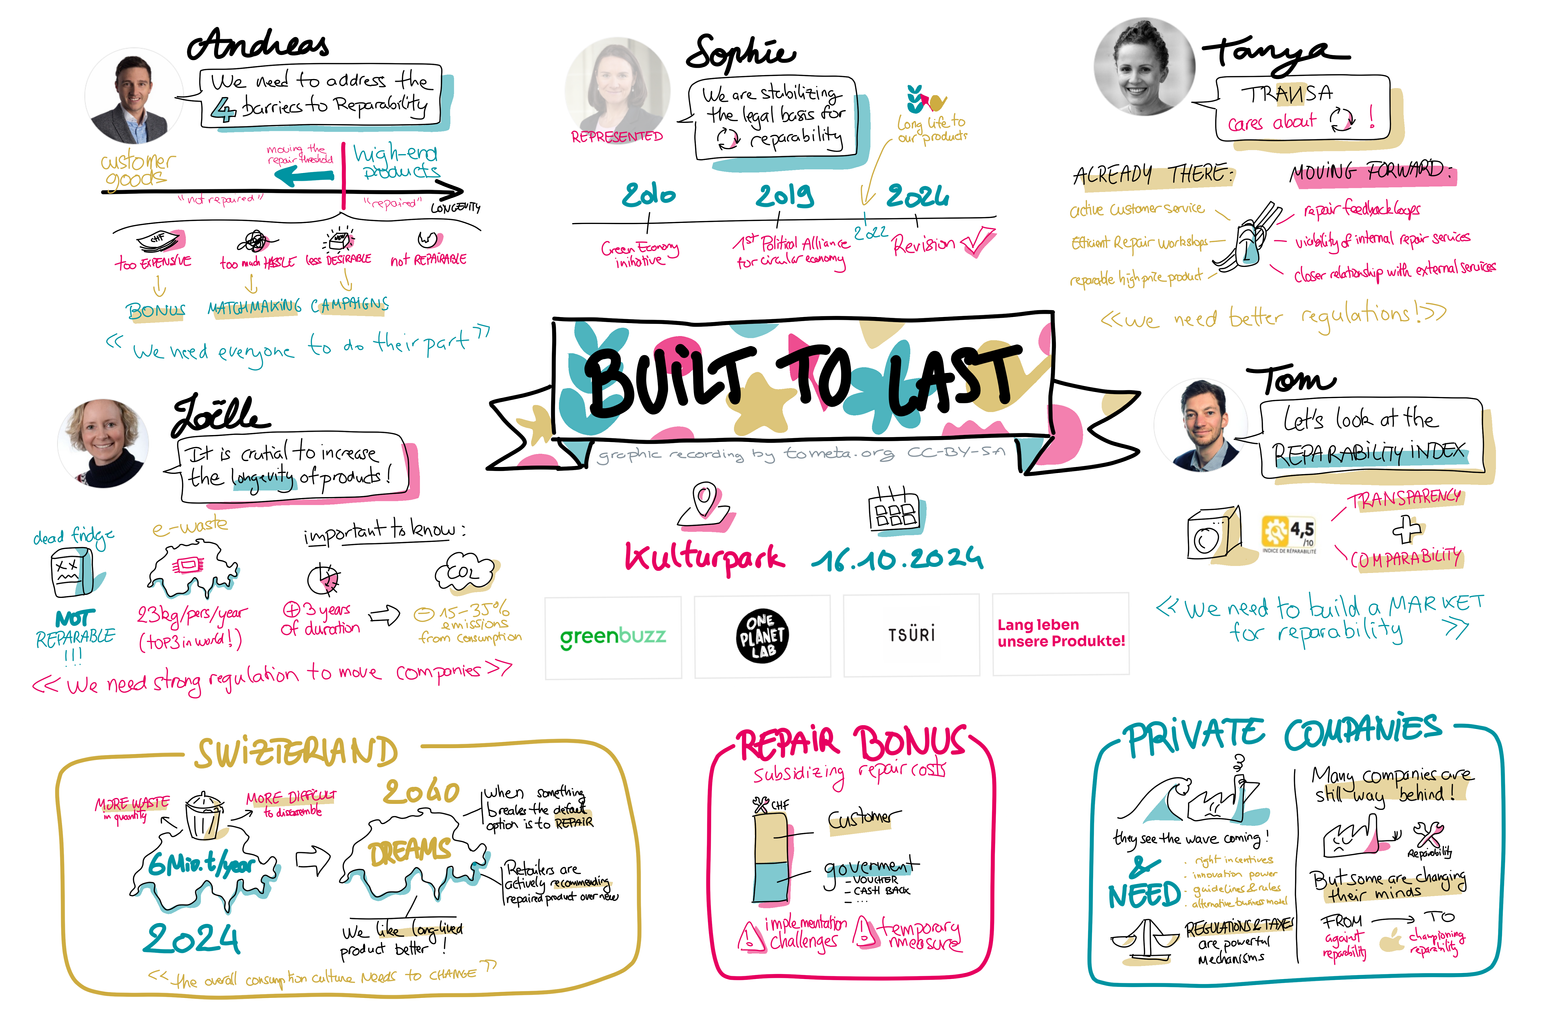 Andreas
We need to address the
4 barriers to Reparability
customer
goods
moving the
repair threshold
high-end
products
"not repaired"
"repaired"
LONGEVITY
CHF
too EXPENSIVE
too much HASSLE
NEW
less DESIRABLE
not REPAIRABLE
BONUS
MATCHMAKING
CAMPAIGNS
<< We need everyone to do their part >>
Sophie
REPRESENTED
We are stabilizing
the legal basis for
reparability
Long life to
our products
2010
2019
2022
2024
Green Economy
initiative
1st Political Alliance
for circular economy
Revision
Tanya
TRANSA
cares about !
ALREADY THERE:
active customer service
Efficient Repair workshops
reparable high price product
MOVING FORWARD:
repair feedback loops
viability of internal repair services
closer relationship with external services
<< we need better regulations! >>
BUILT TO LAST
graphic recording by tometa.org CC-BY-SA
Kulturpark
16.10.2024
greenbuzz
ONE
PLANET
LAB
TSÜRI
Lang leben
unsere Produkte!
Joëlle
It is crutial to increase
the longevity of products!
dead fridge
NOT
REPARABLE
!!!
e-waste
23kg/pers/year
(TOP3 in world!)
important to know:
+ 3 years
of duration
CO2
- 15-35%
emissions
from consumption
<< We need strong regulation to move companies >>
Tom
Let's look at the
REPARABILITY INDEX
4,5
/10
INDICE DE RÉPARABILITÉ
TRANSPARENCY
+
COMPARABILITY
<< We need to build a MARKET
for reparability >>
SWIZTERLAND
MORE WASTE
in quantity
MORE DIFFICULT
to dissasemble
6 Mio. t/year
2024
2040
DREAMS
When something
breakes the default
option is to REPAIR
Retailers are
actively recommending
repaired product over new
We like long-lived
product better!
<< the overall consumption culture NEEDS to CHANGE >>
REPAIR BONUS
Subsidizing repair costs
CHF
Customer
goverment
- VOUCHER
- CASH BACK
- ...
implementation
challenges
temporary
measure
PRIVATE COMPANIES
they see the wave coming!
&
NEED
· right incentives
· innovation power
· guidelines & rules
· alternative business model
REGULATIONS & TAXES
are powerful
mechanisms
Many companies are
still way behind!
Reparability
But some are changing
their minds
FROM
against
reparability
TO
championing
reparability